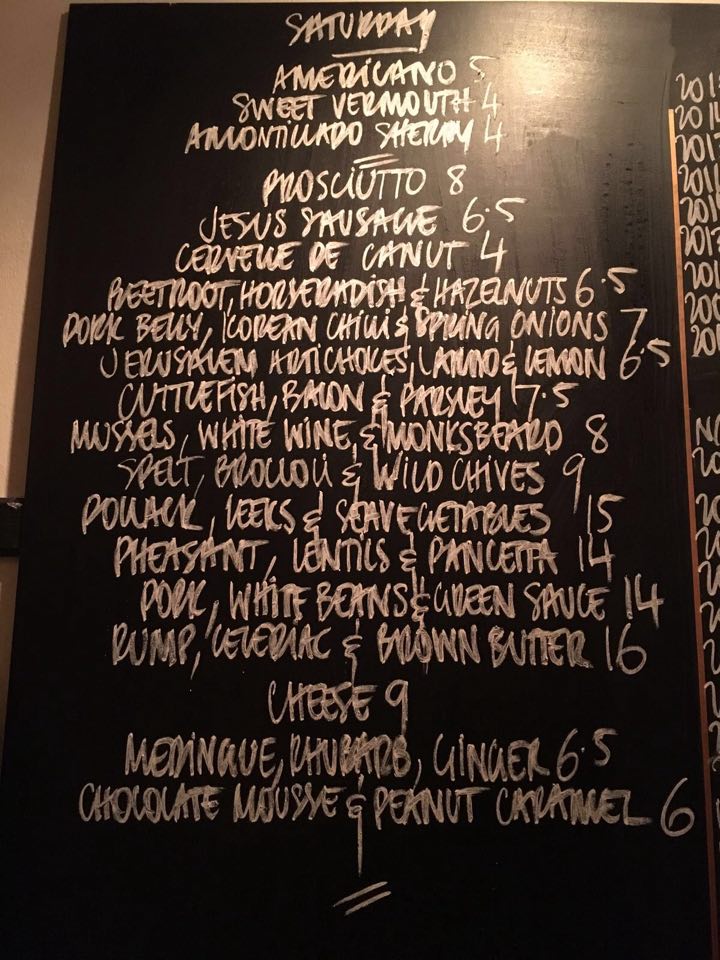 SATURDAY
AMERICANO 5
SWEET VERMOUTH 4
AMONTILLADO SHERRY 4
PROSCIUTTO 8
JESUS SAUSAGE 6.5
CERVELLE DE CANUT 4
BEETROOT, HORSERADISH & HAZELNUTS 6.5
PORK BELLY, KOREAN CHILLI & SPRING ONIONS 7
JERUSALEM ARTICHOKES, LARDO & LEMON 6.5
CUTTLEFISH, BACON & PARSLEY 7.5
MUSSELS, WHITE WINE & MONKSBEARD 8
SPELT, BROCCOLI & WILD CHIVES 9
POLLACK, LEEKS & SEAVEGETABLES 15
PHEASANT, LENTILS & PANCETTA 14
PORK, WHITE BEANS & GREEN SAUCE 14
RUMP, CELERIAC & BROWN BUTTER 16
CHEESE 9
MERINGUE, RHUBARB, GINGER 6.5
CHOCOLATE MOUSSE & PEANUT CARAMEL 6